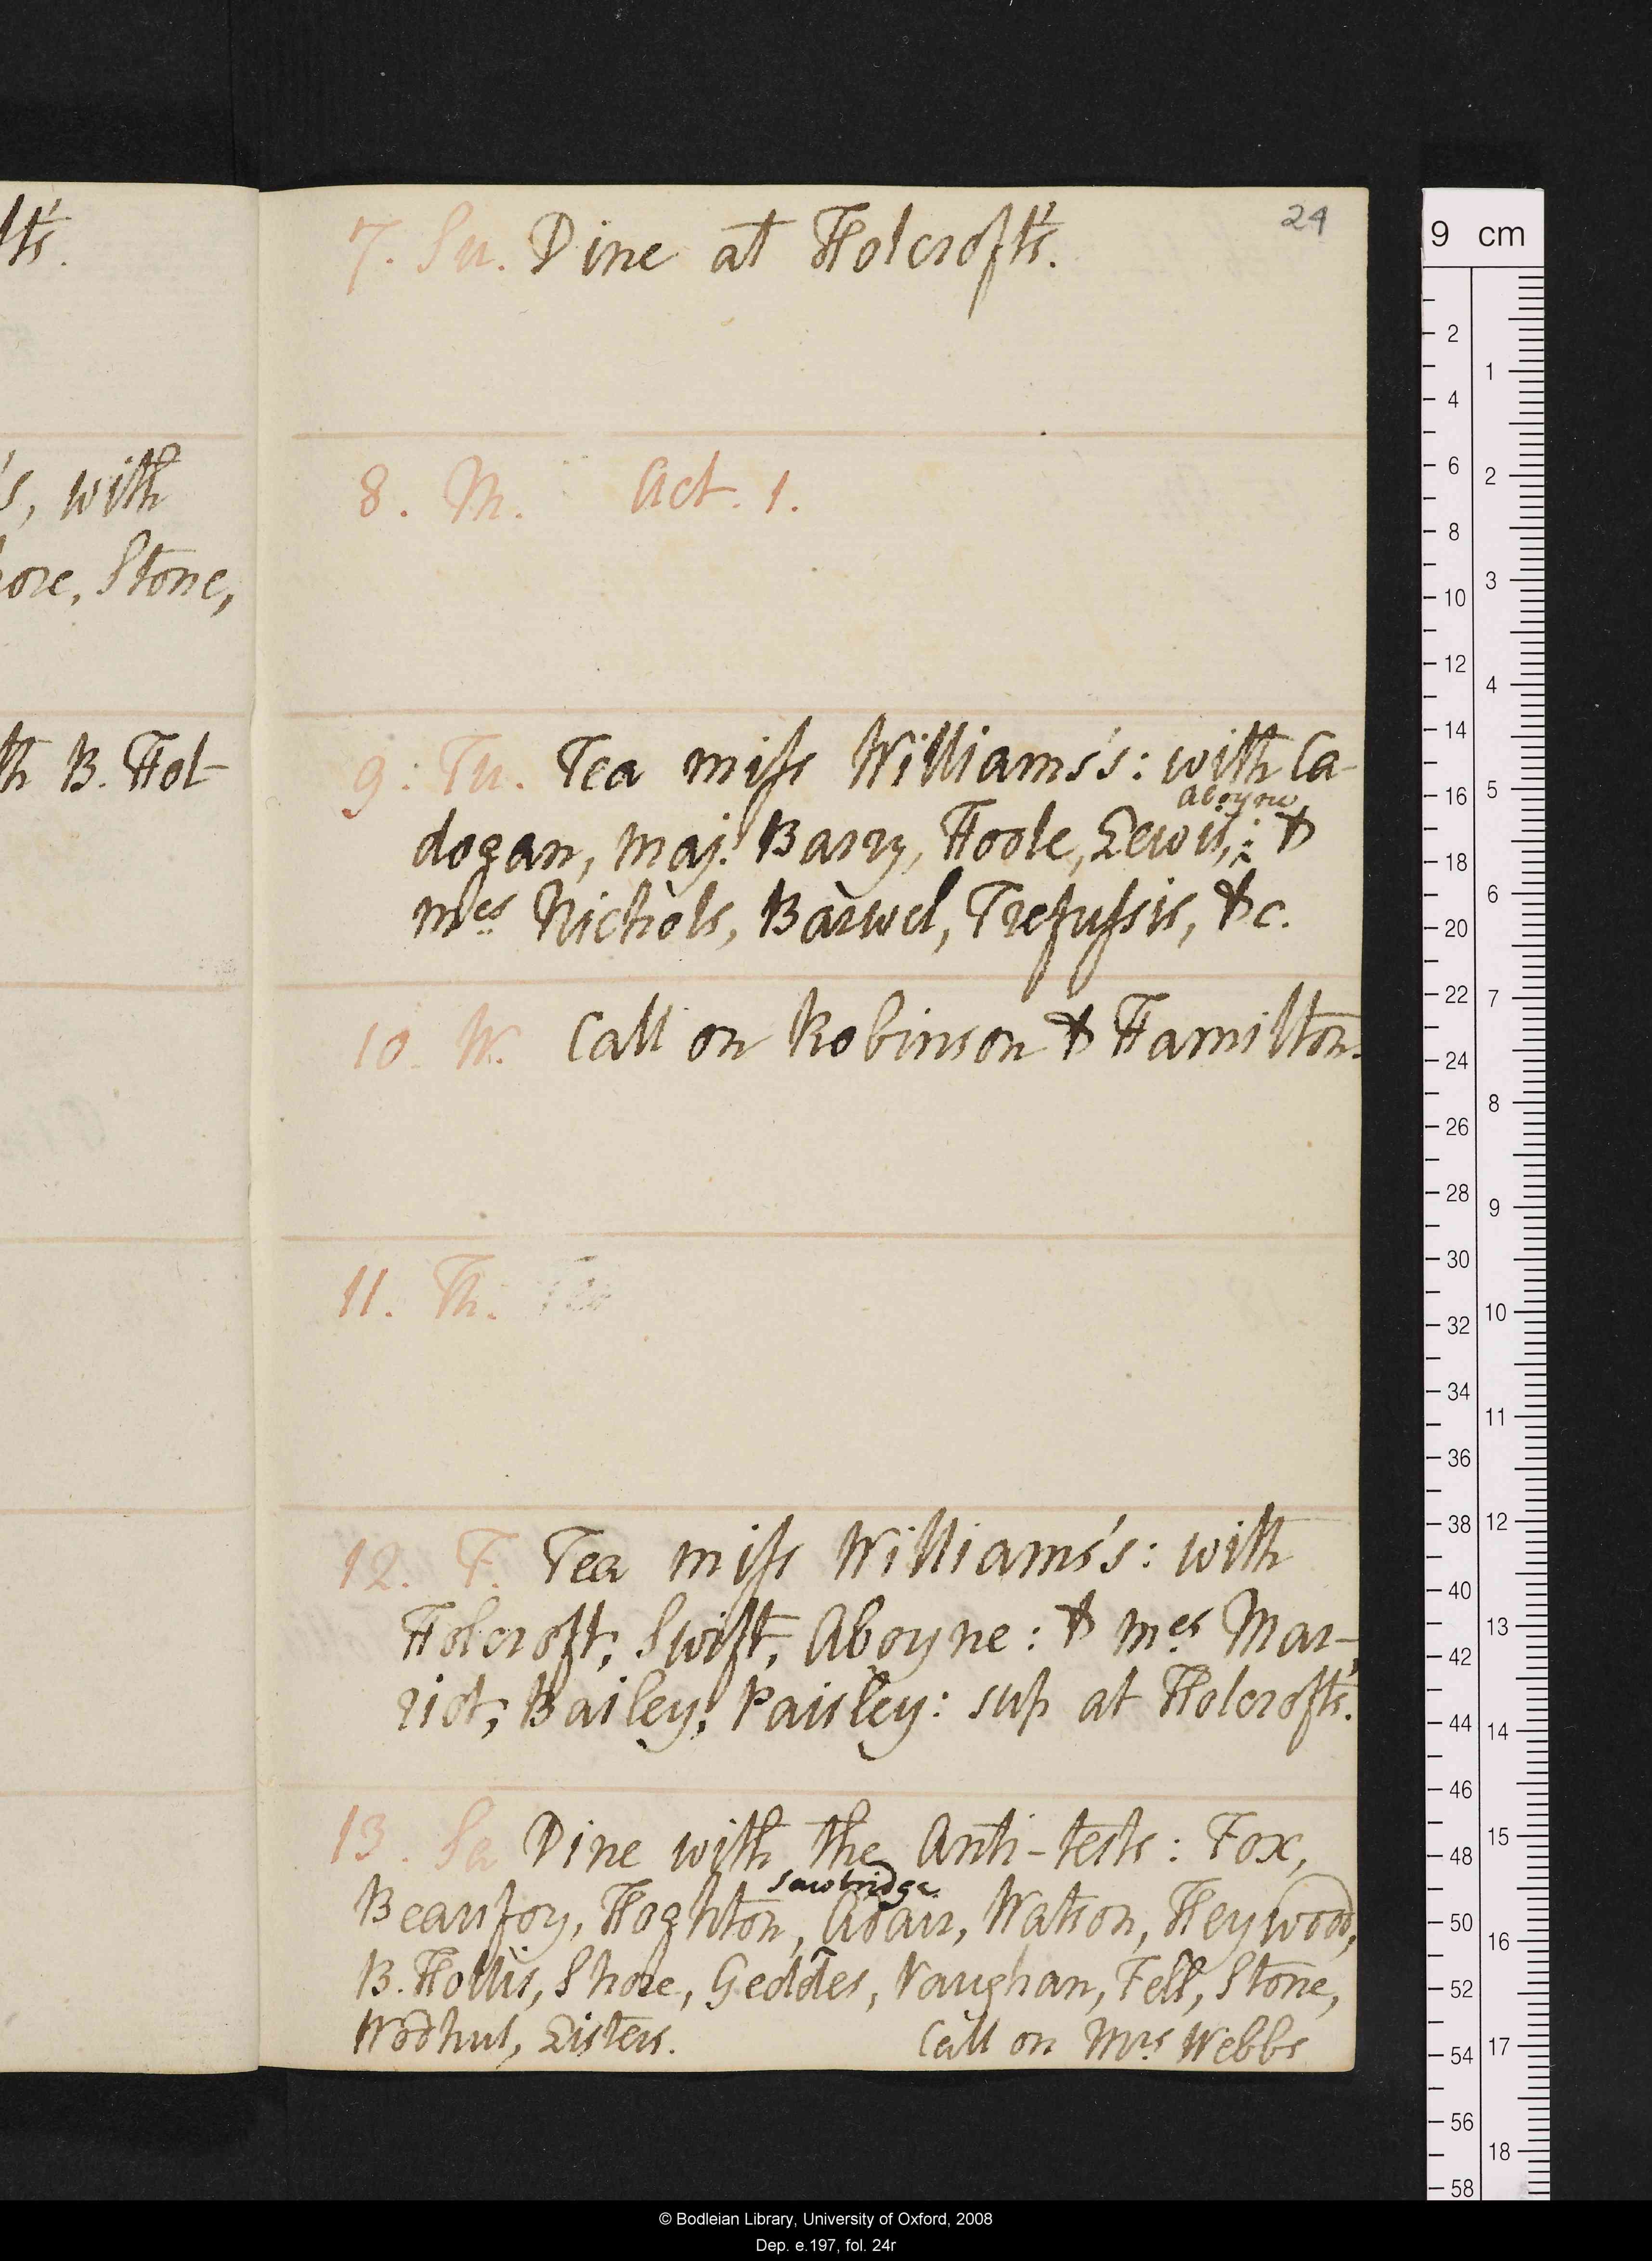 lt's.
's, with
ore, Stone,
th B. Hol-
24
7. Su. Dine at Holcroft's.
8. M. Act. 1.
9. Tu. Tea miss Williams's: with Ca-
Aboyne,
dogan, maj. Barry, Hoole, Lewis,: &
mes Nichols, Barwel, Trefussis, &c.
10. W. Call on Robinson & Hamilton.
11. Th. Tea
12. F. Tea miss Williams's: with
Holcroft, Swift, Aboyne: & mes Mar-
riot, Bailey, Paisley: sup at Holcroft's.
13. Sa Dine with the Anti-tests: Fox,
Sawbridge
Beaufoy, Hoghton, Adair, Watson, Heywood,
B. Hollis, Shore, Geddes, Vaughan, Fell, Stone,
Wodhul, Listers. Call on Mrs Webbe
9 cm
2 4 6 8 10 12 14 16 18 20 22 24 26 28 30 32 34 36 38 40 42 44 46 48 50 52 54 56 58
1 2 3 4 5 6 7 8 9 10 11 12 13 14 15 16 17 18
© Bodleian Library, University of Oxford, 2008
Dep. e.197, fol. 24r